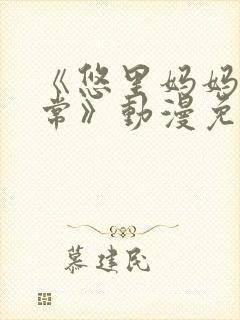 《悠里妈妈
常》動漫免
慕建民